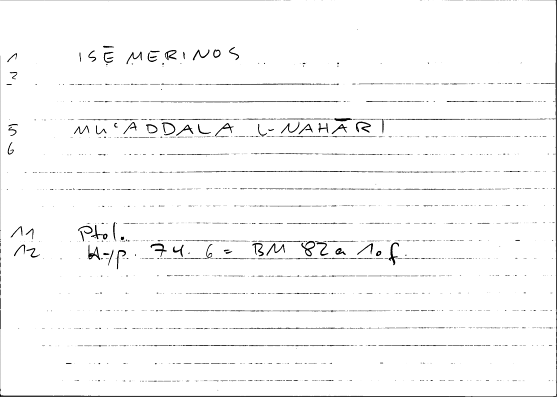 1 ISĒMERINOS
2
5 MUʿADDALA L-NAHĀRĪ
6
11 Ptol.
12 Hyp. 74.6 = BM 82a 10f.